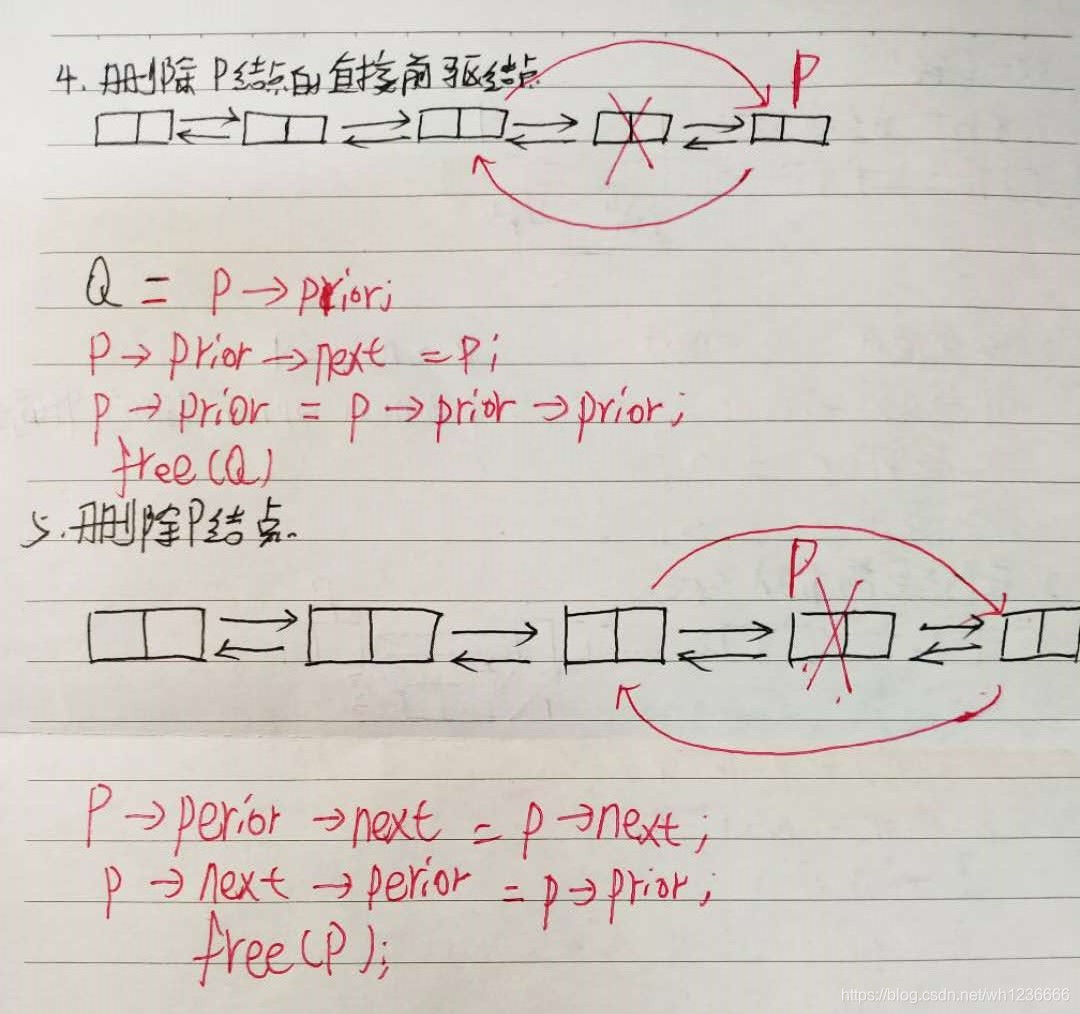 4. 删除P结点的直接前驱结点
P
Q = P→prior;
P→prior→next = P;
P→prior = P→prior→prior;
free(Q)
5. 删除P结点.
P
P→perior→next = p→next;
p→next→perior = p→prior;
free(P);
https://blog.csdn.net/wh1236666